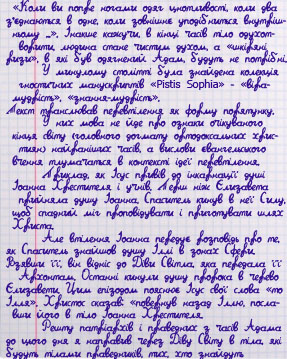 «Коли ви попре ногами одяг цнотливості, коли два
з'єднаються в одне, коли зовнішнє уподібниться внутріш-
ньому ..». Інакше кажучи, в кінці часів тіло одухот-
вориться, людина стане чистим духом, а «шкіряні
ризи», в які був одягнений Адам, будуть не потрібні.
У минулому столітті була знайдена колекція
гностичних манускриптів «Pistis Sophia» - «віра-
мудрість», «знання-мудрість».
Текст трактував перевтілення як форму порятунку,
у них мова не йде про ознаки очікуваного
кінця світу (головного догмату ортодоксальних хрис-
тиян) найраніших часів, а вислови євангельського
вчення тлумачаться в контексті ідеї перевтілення.
Приклад, як Ісус привів до інкарнації душі
Іоанна Хрестителя і учнів. Перш ніж Єлизавета
прийняла душу Іоанна, Спаситель кинув в неї Силу,
щоб зміг проповідувати і приготувати шлях
Христа.
Але втілення Іоанна передує розповідь про те,
як Спаситель знайшов душу Іллі в зонах Сфери.
Взявши її, він відніс до Діви Світла, яка передала її
Архонтам. Останні кинули душу пророка в черево
Єлизавети. Цим епізодом пояснює Ісус свої слова «то
Ілля», Христос сказав: «повернув назад Іллю, посла-
вши його в тіло Іоанна Хрестителя.
Решту патріархів і праведних з часів Адама
до цього дня я направив через Діву Світу в тіла, які
будуть тілами праведників, тих, хто знайдуть